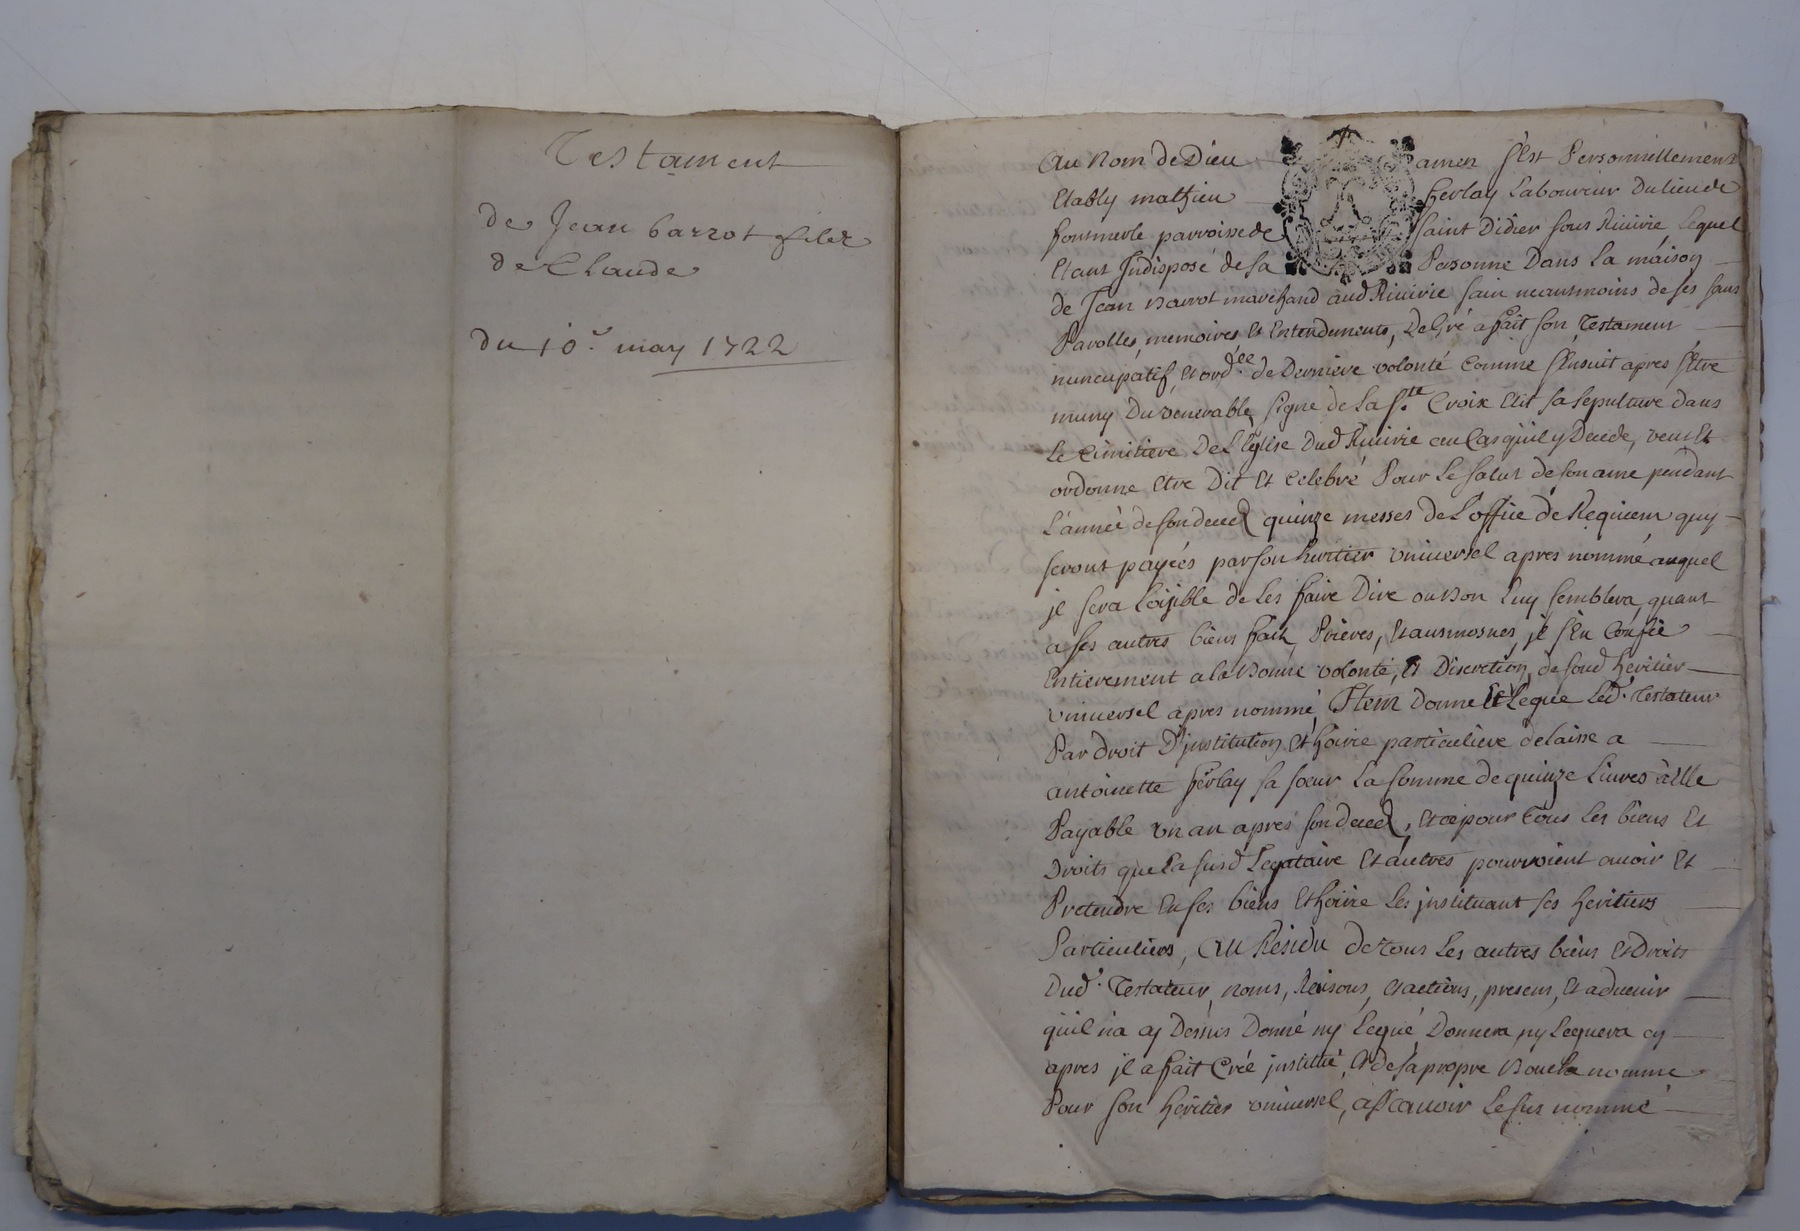 Testament
de Jean barrot filz
de Claude
du 10.e may 1722
Au Nom de Dieu amen s'Est Personnellement
Etably mathieu ferlay Laboureur Du lieu de
fontmerle parroisse de saint Didier sous Riuirie Lequel
Etant Indisposé de sa Personne Dans La maison
de Jean Barrot marchand aud Riuirie sain neantmoins de ses sans
Parolles, memoires Et Entendements, De Gré a fait son Testament
nuncupatif, et ord.ce de Derniere volonté Comme s'Ensuit apres s'Etre
muny Du venerable signe de La s.te Croix Elit sa sepulture dans
Le Cimitiere De L'Eglise Dud Riuirie au Cas quil y Decede, veut Et
ordonne Etre Dit Et Celebré Pour Le salut de son ame pendant
L'année de son deced quinze messes de L'office de Requiem quy
seront payées par son heritier vniuersel apres nommé auquel
jl sera Loisible de Les faire Dire ou Bon Luy semblera, quant
a ses autres biens fait, Prieres, Et ausmosnes, jl s'En Confie
Entierement a la Bonne volonté, Et Discretion de soud heritier
vniuersel apres nommé, Item Donne Et Legue Led. Testateur
Par droit D'jnstitution Et hoirie particuliere delaisse a
antoinette ferlay sa soeur La somme de quinze Liures à Elle
Payable vn an apres son deced, Et ce pour Tous Les biens Et
Droits que La susd Legataire Et autres pourroient auoir Et
Pretendre En ses biens Et hoirie Les jnstituant ses heritiers
Particuliers, Au Residu de Tous Les autres biens Et Droits
Dud. Testateur, noms, Raisons, Et actions, presens, Et aduenir
qu'il n'a cy Dessus Donné ny Legué, Donnera ny Leguera cy
apres jl a fait Créé jnstitué, Et de sa propre Bouche nommé
Pour son heritier vniuersel, assauoir Le sus nommé